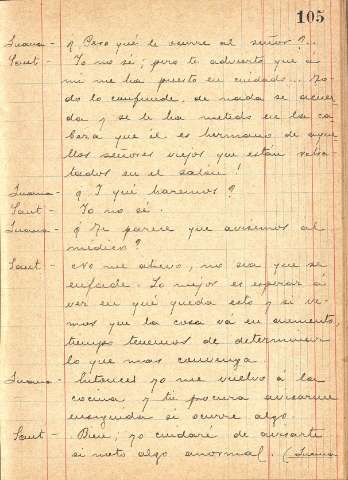 105
Juana - ¿ Pero qué le ocurre al señor?..
Sant - Yo no sé; pero te advierto que á
mi me ha puesto en cuidado... To-
do lo confunde, de nada se acuer-
da y se le ha metido en la ca-
beza que él es hermano de aque-
llos señores viejos que están retra-
tados en el salón!
Juana - ¿ Y qué haremos?
Sant - Yo no sé.
Juana - ¿ Te parece que avisemos al
médico?
Sant - No me atrevo, no sea que se
enfade. Lo mejor es esperar á
ver en qué queda esto y si ve-
mos que la cosa vá en aumento,
tiempo tenemos de determinar
lo que mas convenga
Juana - Entonces yo me vuelvo á la
cocina y tú procura avisarme
enseguida si ocurre algo.
Sant - Bien; yo cuidaré de avisarte
si noto algo anormal. (Juana